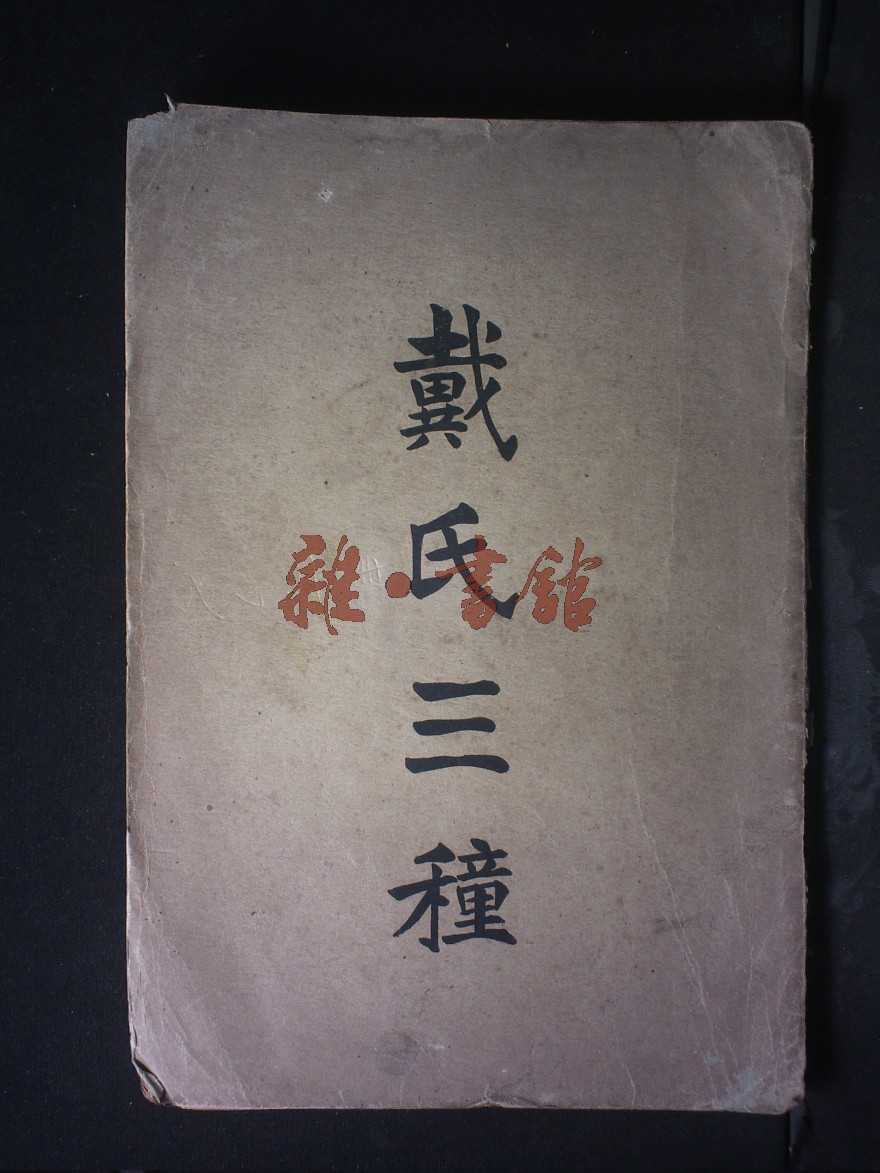 戴氏三穜
雜·書館